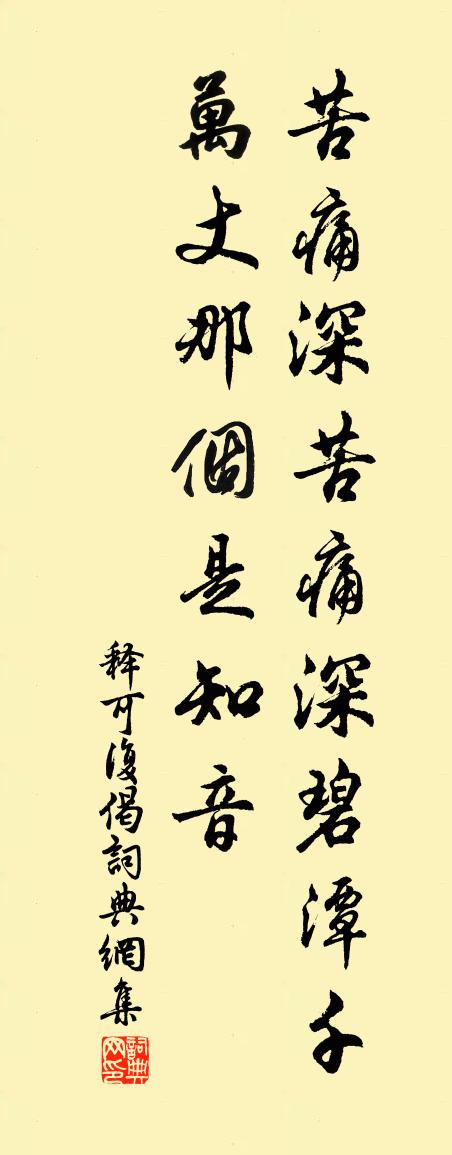 苦痛深苦痛深碧潭千
萬丈那個是知音
释可復偈詞典網集
詞典网印